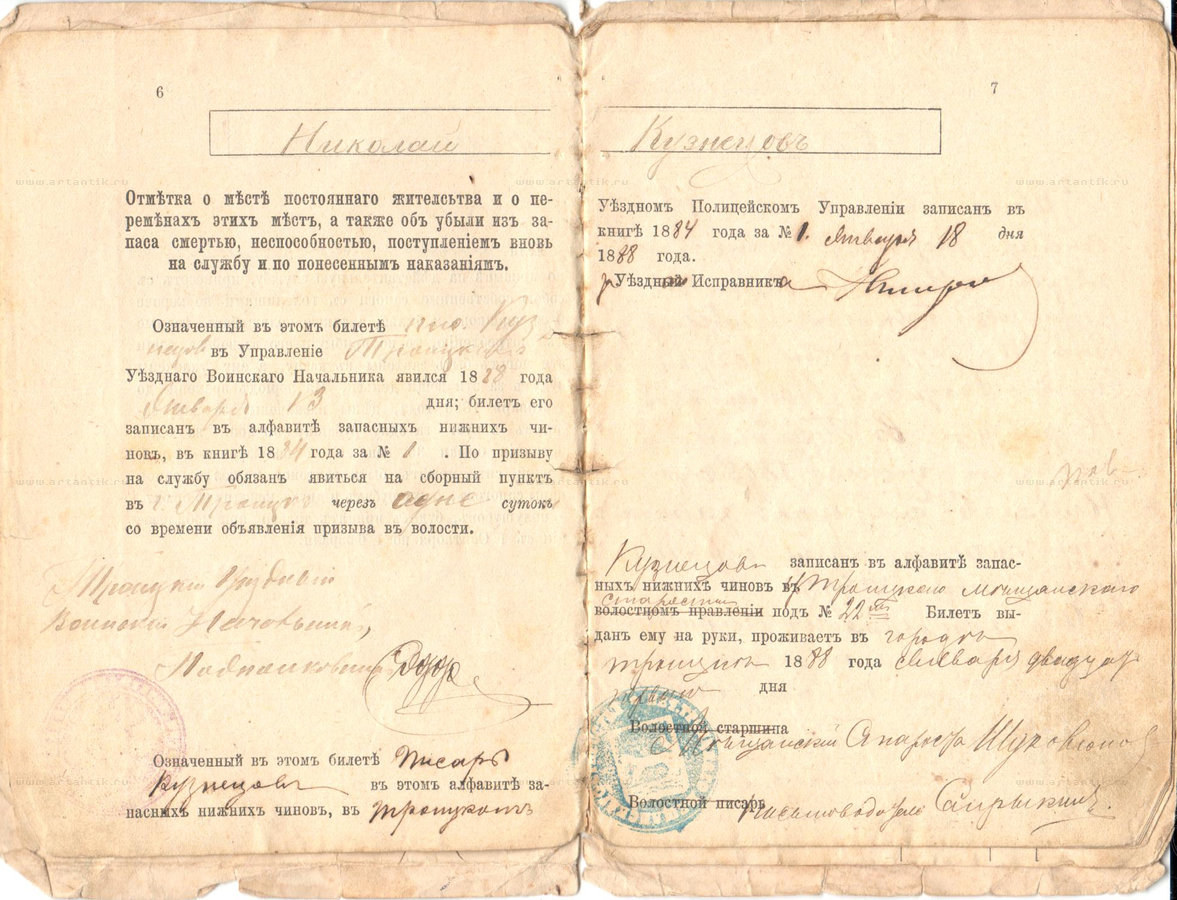 6
Николай
Отмѣтка о мѣстѣ постояннаго жительства и о пе-
ремѣнахъ этихъ мѣстъ, а также объ убыли изъ за-
паса смертью, неспособностью, поступленіемъ вновь
на службу и по понесеннымъ наказаніямъ.
Означенный въ этомъ билетѣ пис. Куз
нецов въ Управленіе Троицкаго
Уѣзднаго Воинскаго Начальника явился 1888 года
Января 13 дня; билетъ его
записанъ въ алфавитѣ запасныхъ нижнихъ чи-
новъ, въ книгѣ 1884 года за № 1. По призыву
на службу обязанъ явиться на сборный пунктъ
въ г. Троицкъ черезъ одне сутокъ
со времени объявленія призыва въ волости.
Троицкій Уѣздный
Воинскій Начальникъ,
Подполковникъ
Означенный въ этомъ билетѣ Писарь
Кузнецовъ въ этомъ алфавитѣ за-
пасныхъ нижнихъ чиновъ, въ Троицкомъ
7
Кузнецовъ
Уѣздномъ Полицейскомъ Управленіи записанъ въ
книгѣ 1884 года за № 1. Января 18 дня
1888 года.
Уѣздный Исправникъ
Кузнецовъ записанъ въ алфавитѣ запас-
ныхъ нижнихъ чиновъ въ Троицкаго Мѣщанскаго
волостномъ правленіи подъ № 22 Билетъ вы-
данъ ему на руки, проживаетъ въ городѣ
Троицкѣ 1888 года Января двадцат
дня
Волостной старшина
Мѣщанскій Староста
Волостной писарь
Письмоводитель
www.artantik.ru
www.artantik.ru
www.artantik.ru
www.artantik.ru
www.artantik.ru
www.artantik.ru
www.artantik.ru
www.artantik.ru
www.artantik.ru